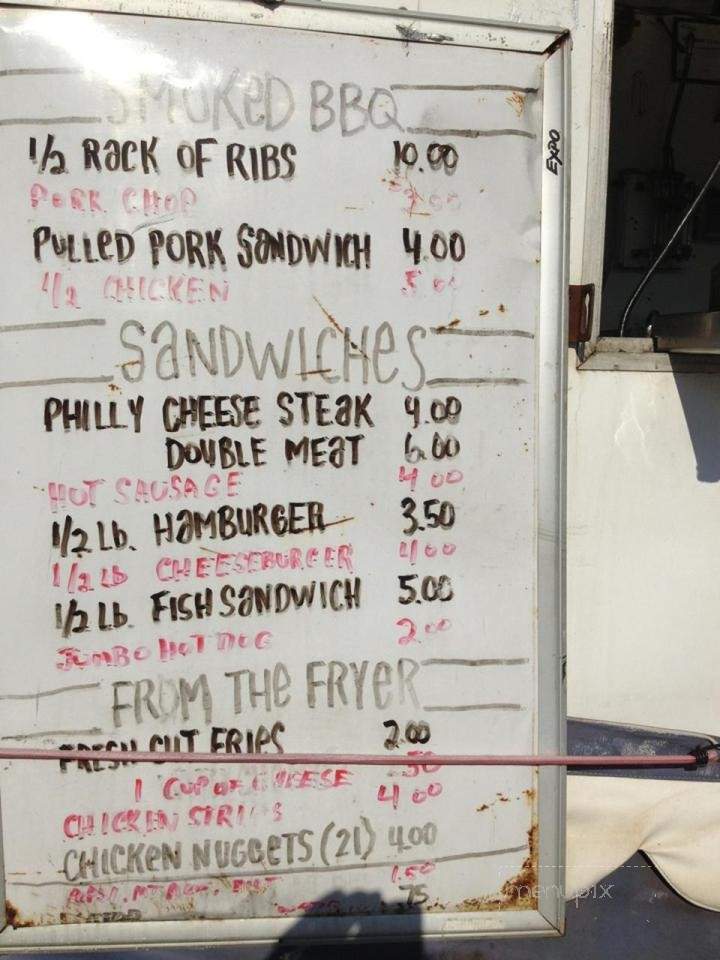 SMOKED BBQ
1/2 RACK OF RIBS 10.00
PORK CHOP
PULLED PORK SANDWICH 4.00
1/2 CHICKEN 5.00
SANDWICHES
PHILLY CHEESE STEAK 4.00
DOUBLE MEAT 6.00
HOT SAUSAGE 4.00
1/2 Lb. HAMBURGER 3.50
1/2 Lb CHEESEBURGER 4.00
1/2 Lb. FISH SANDWICH 5.00
JUMBO HOT DOG 2.00
FROM THE FRYER
FRESH CUT FRIES 2.00
1 CUP OF CHEESE .50
CHICKEN STRIPS 4.00
CHICKEN NUGGETS (21) 4.00
1.50
.75
EXPO
menupix